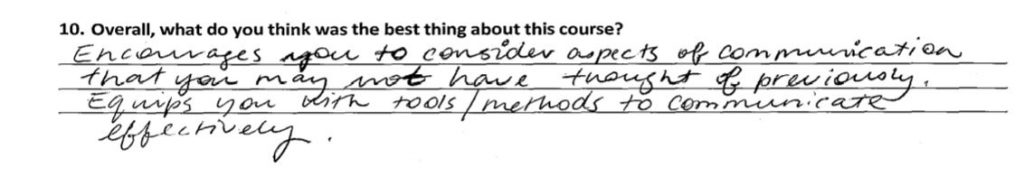 10. Overall, what do you think was the best thing about this course?
Encourages you to consider aspects of communication
that you may not have thought of previously.
Equips you with tools/methods to communicate
effectively.